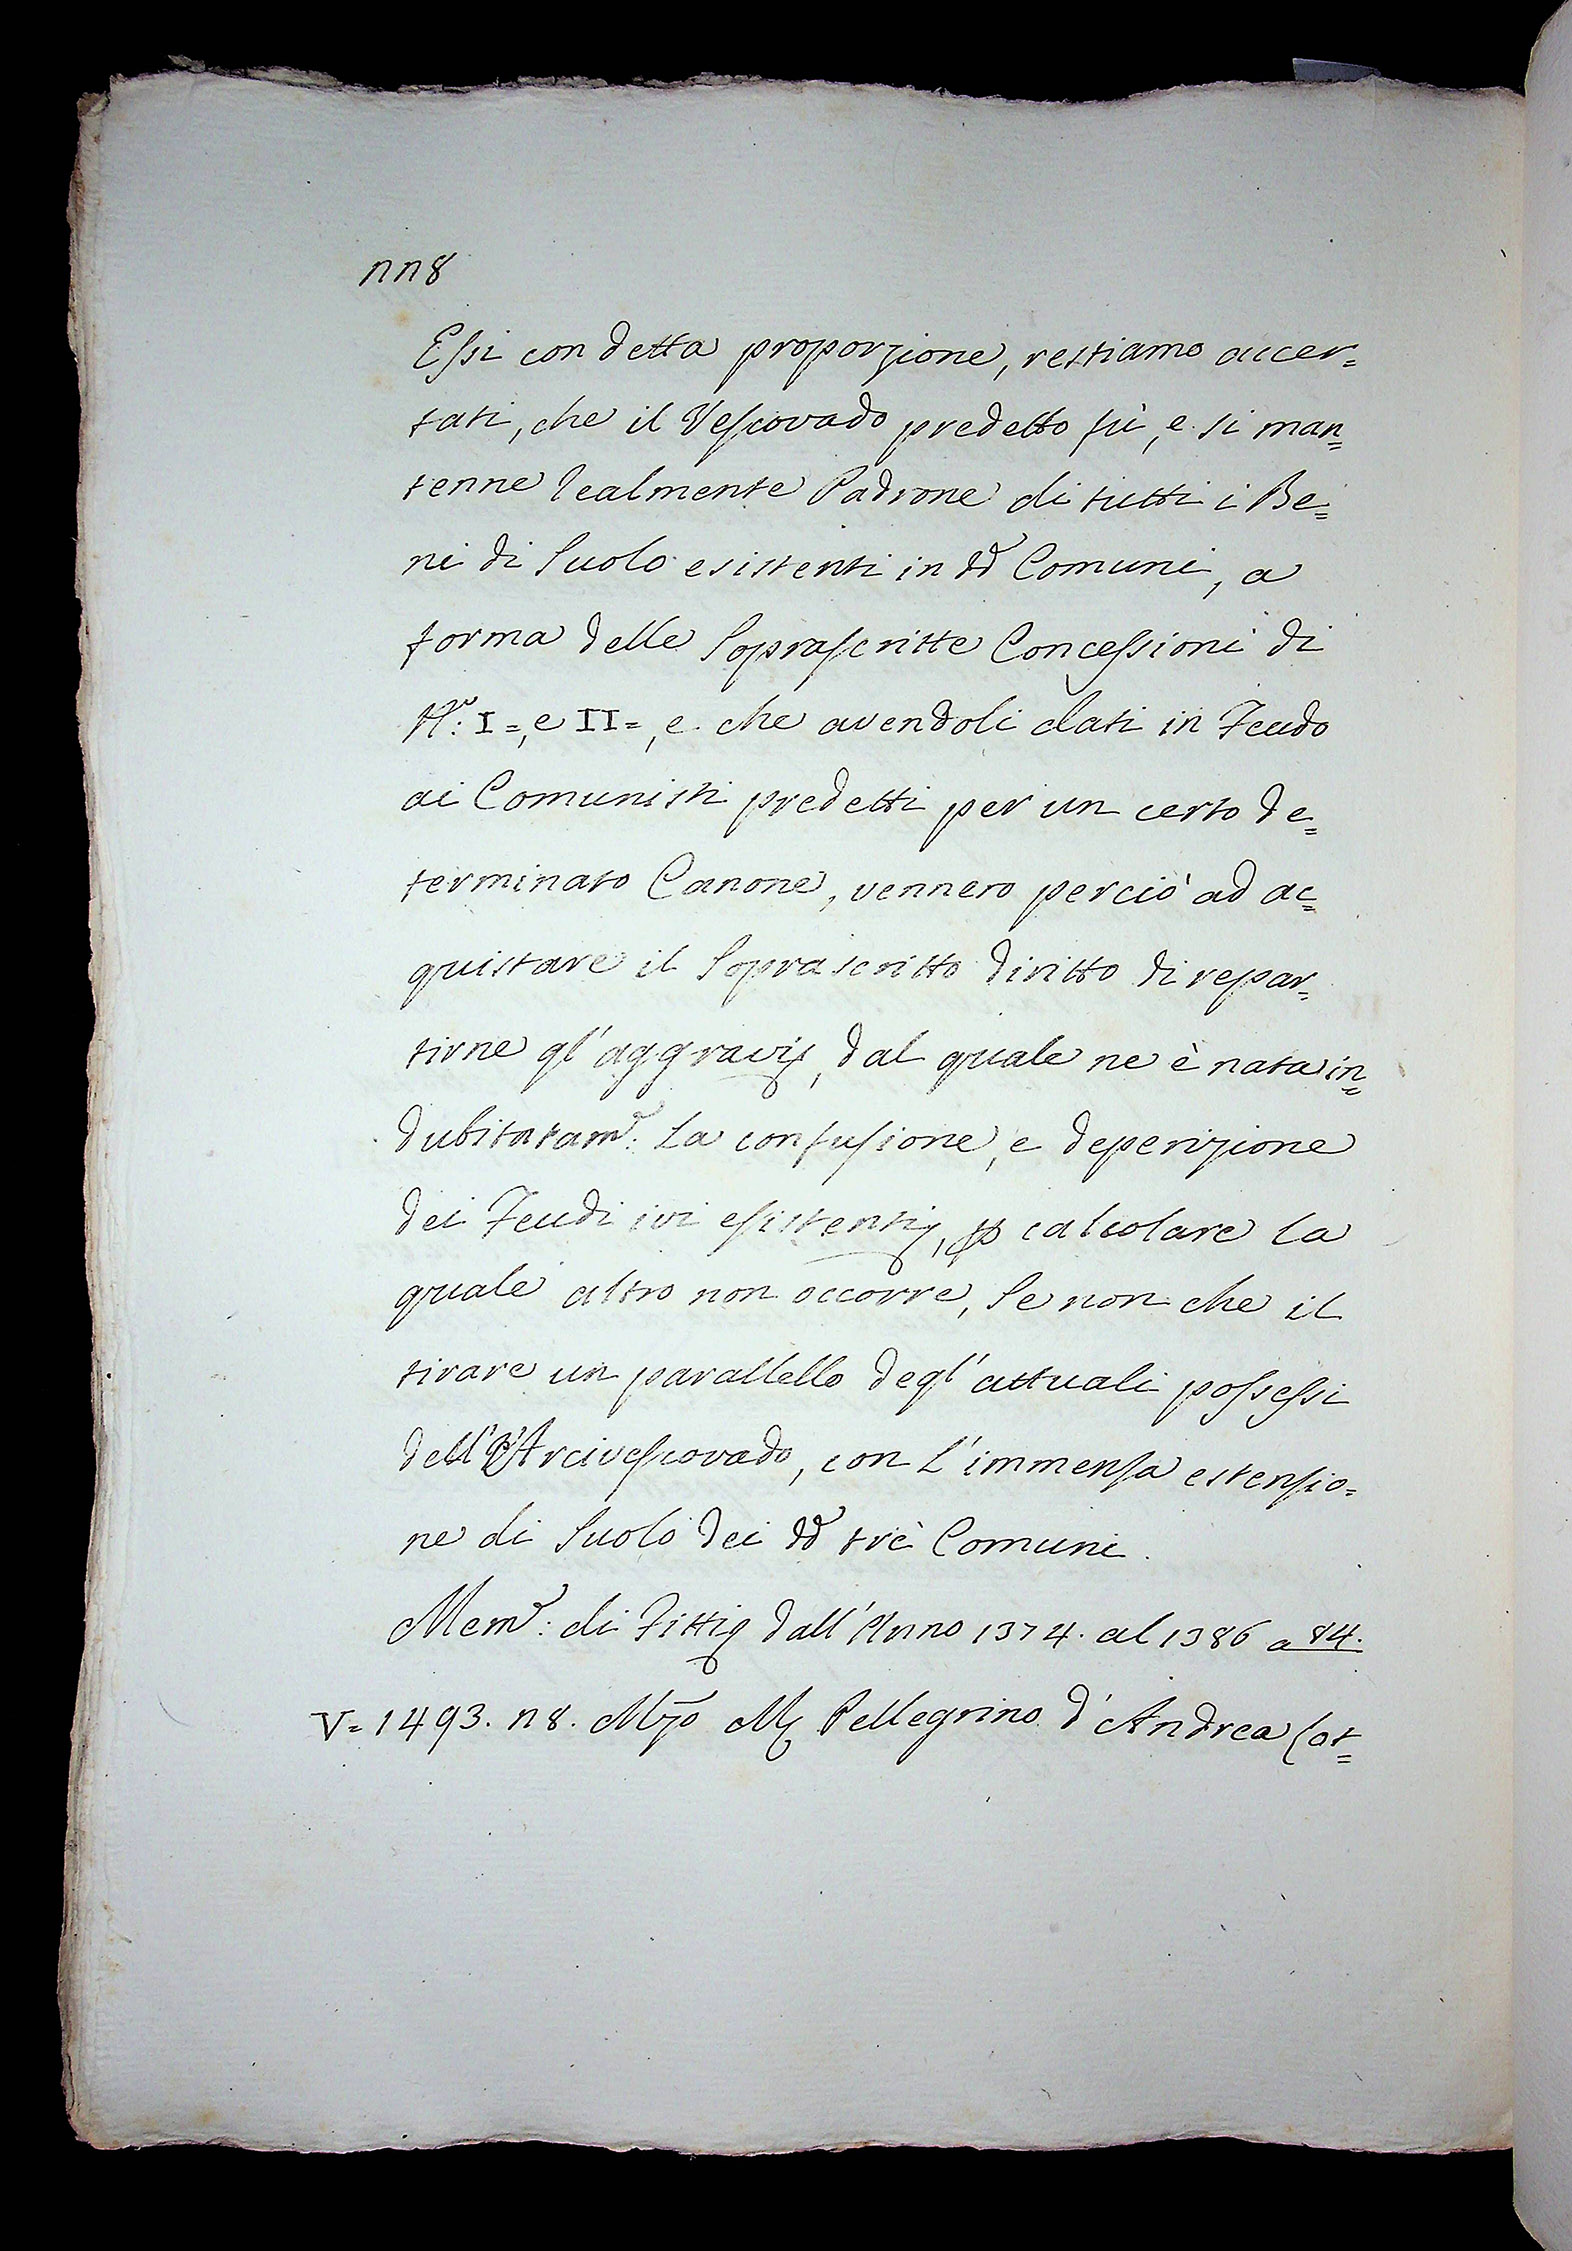 nn8
Essi con detta proporzione, restiamo accer=
tati, che il Vescovado predetto fù, e si man=
tenne realmente Padrone di tutti i Be=
ni di Suolo esistenti in dd Comuni, a
forma delle Soprascritte Concessioni di
N.: I=, e II=, e che avendoli dati in Feudo
ai Comunisti predetti per un certo de=
terminato Canone, vennero perciò ad ac=
quistare il Soprascritto diritto di repar=
tirne gl'aggravij, dal quale ne è nata in=
dubitatam.: La confusione, e deperizione
dei Feudi ivi esistentij, p calcolare la
quale altro non occorre, Se non che il
tirare un parallello degl'attuali possessi
dell'Arcivescovado, con L'immensa estensio=
ne di Suolo dei dd trè Comuni.
Mem.: di Fittij dall'Anno 1374. al 1386 a 84.
V=1493. n8. Mzo Pellegrino d'Andrea Cot=